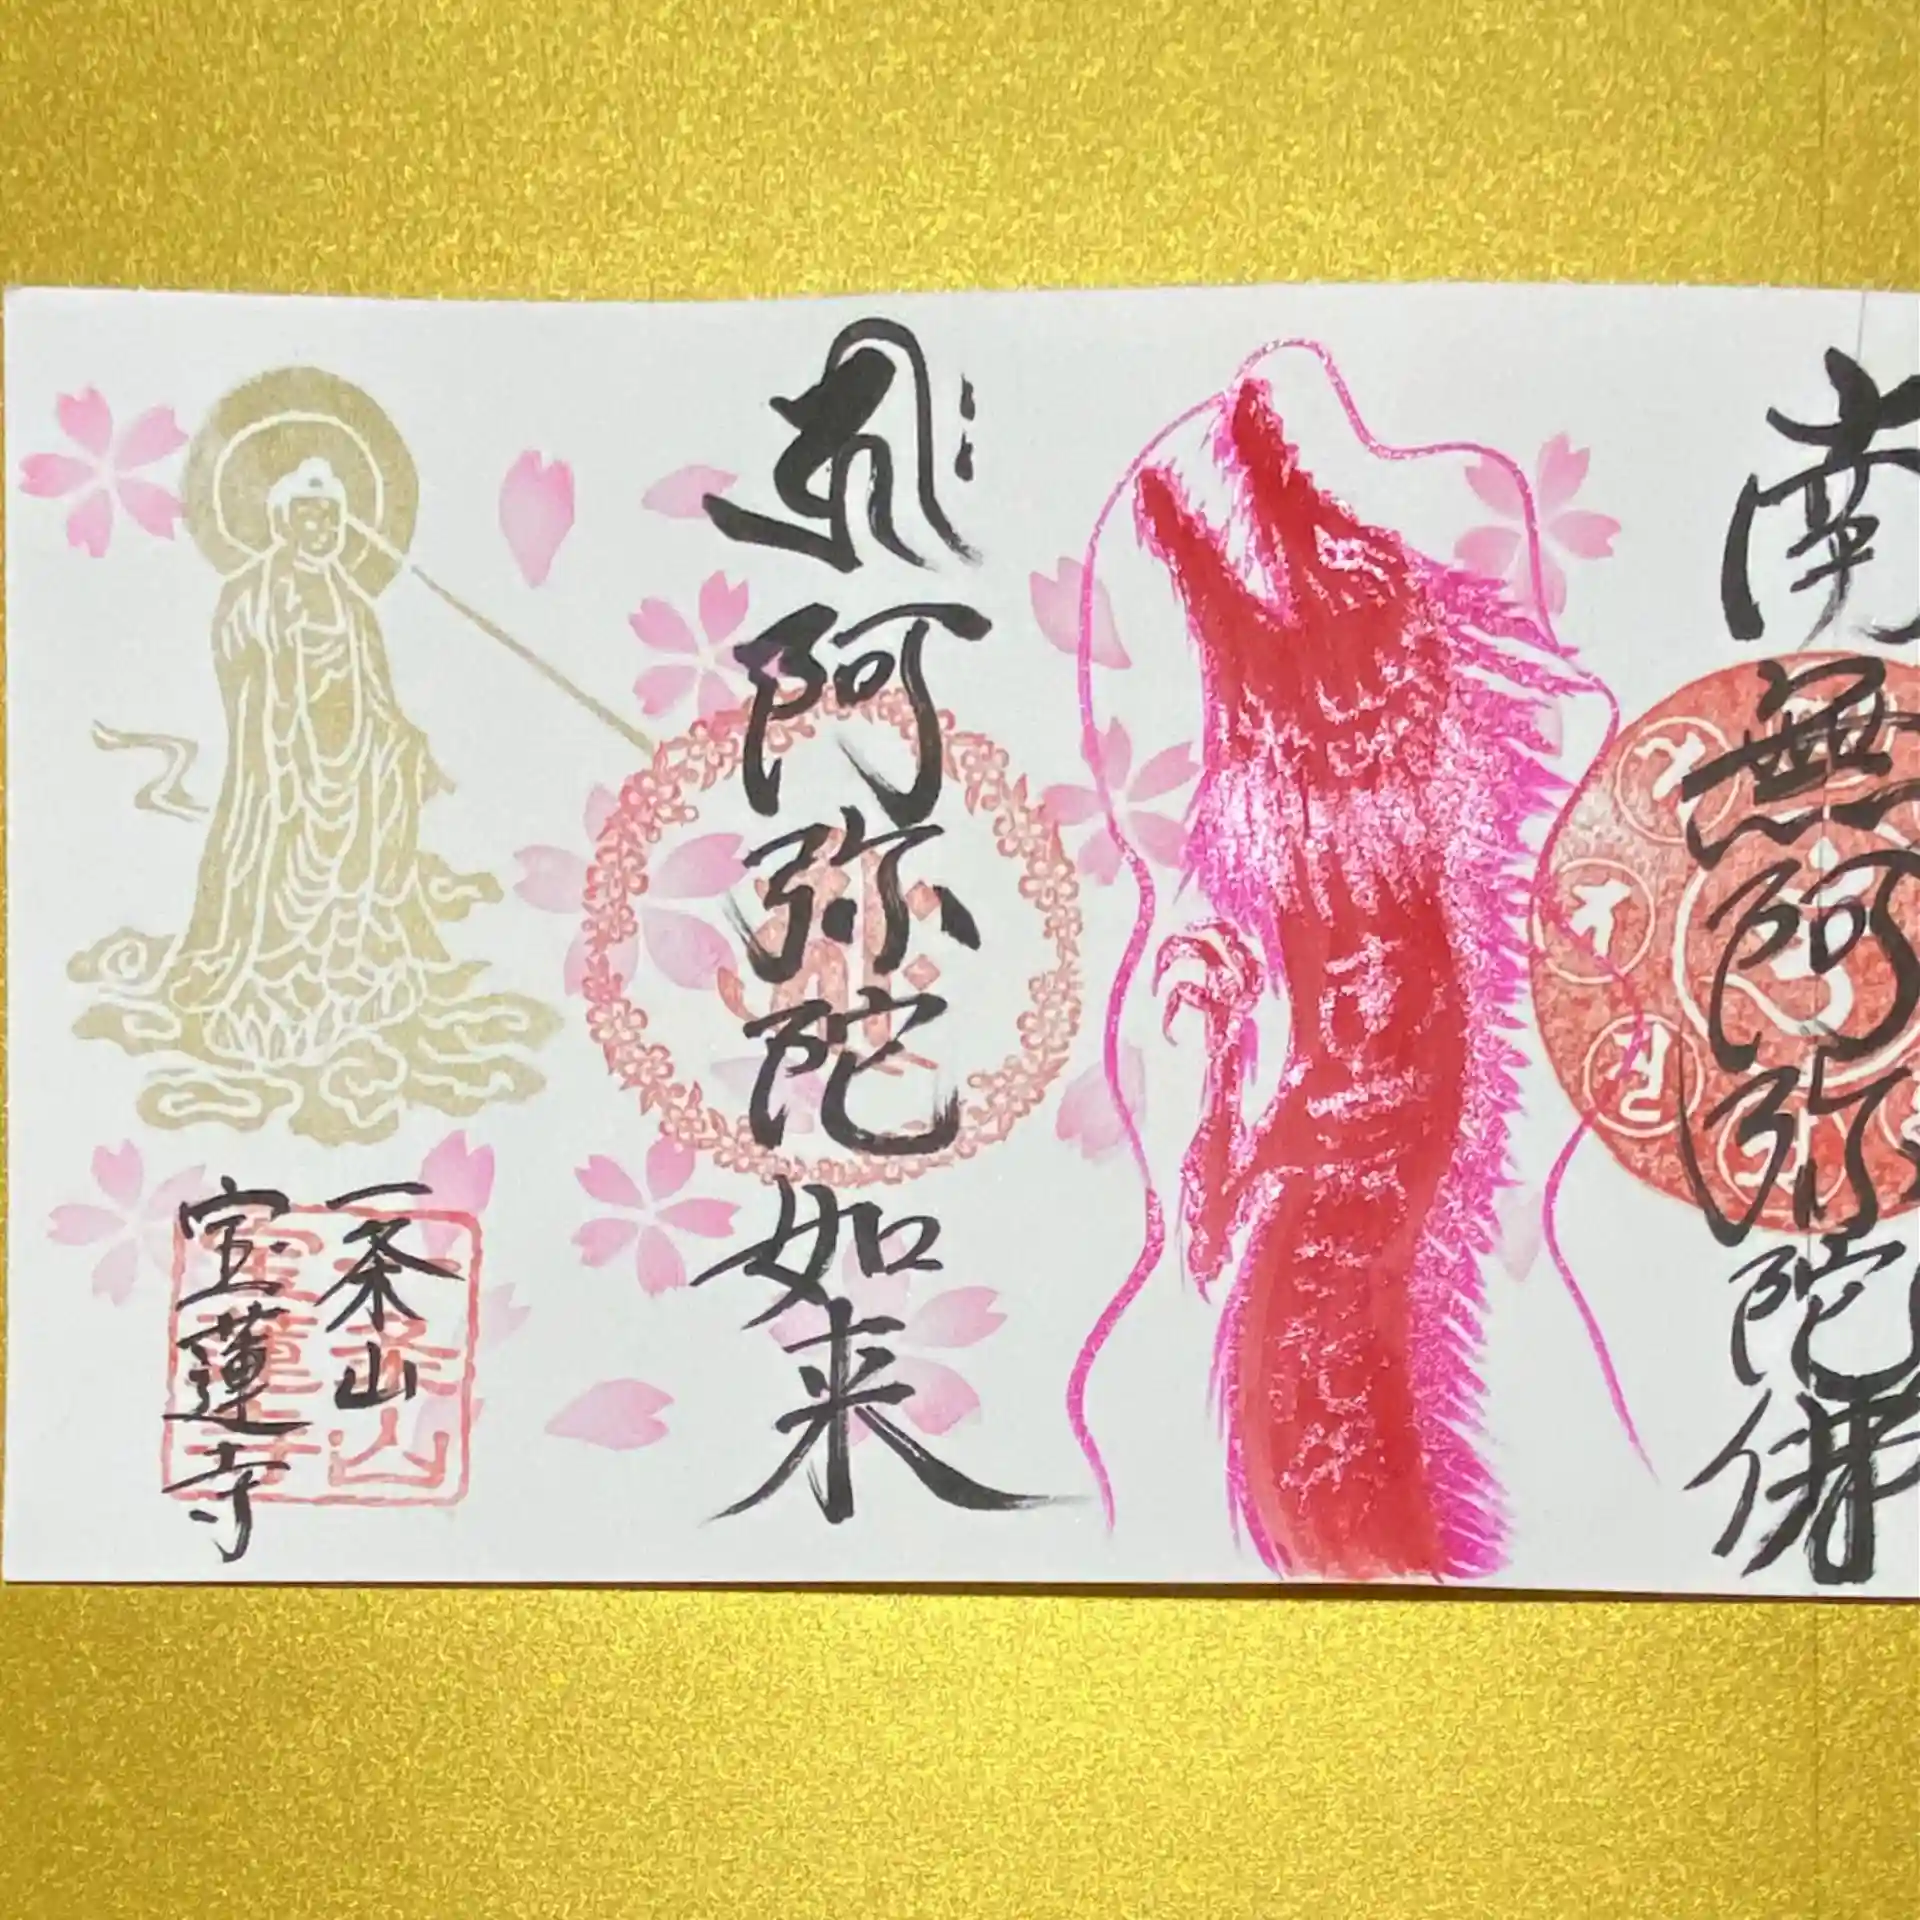 南無阿弥陀佛
𑖮𑖿𑖨𑖱𑖾
阿弥陀如来
一条山
宝蓮寺